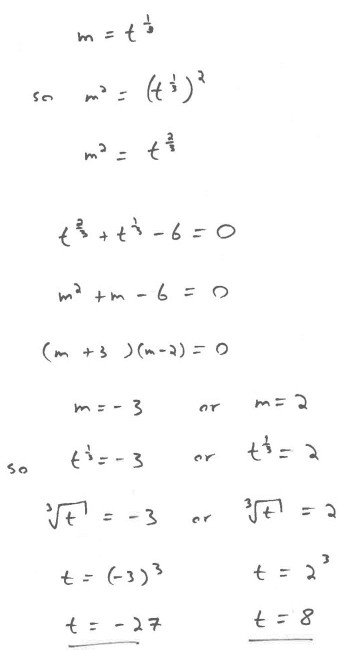 m = t^(1/3)
so m² = (t^(1/3))²
m² = t^(2/3)
t^(2/3) + t^(1/3) - 6 = 0
m² + m - 6 = 0
(m + 3 )(m-2) = 0
m = - 3 or m = 2
so t^(1/3) = - 3 or t^(1/3) = 2
∛t = -3 or ∛t = 2
t = (-3)³ t = 2³
t = -27 t = 8